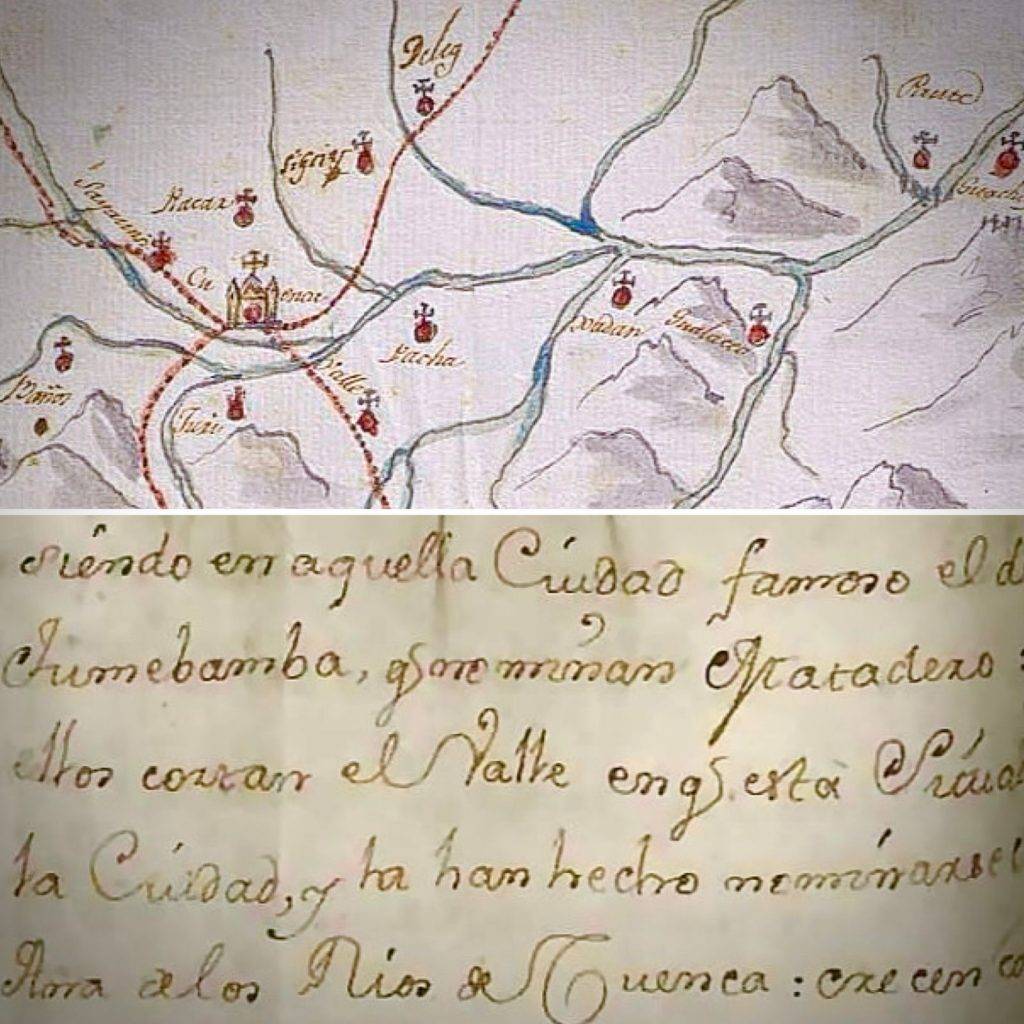 Deleg
Paute
Sigcig
Racar
Sayausi
Guacha
Cu enca
Xadan
Gualaceo
Pacha
Valle
Baños
Turi
siendo en aquella Ciudad famoso el d
Tumebamba, q nominan Matadero:
ellos corran el Valle en q esta Situad
la Ciudad, y la han hecho nominarse
Ana de los Rios de Cuenca: crecen co